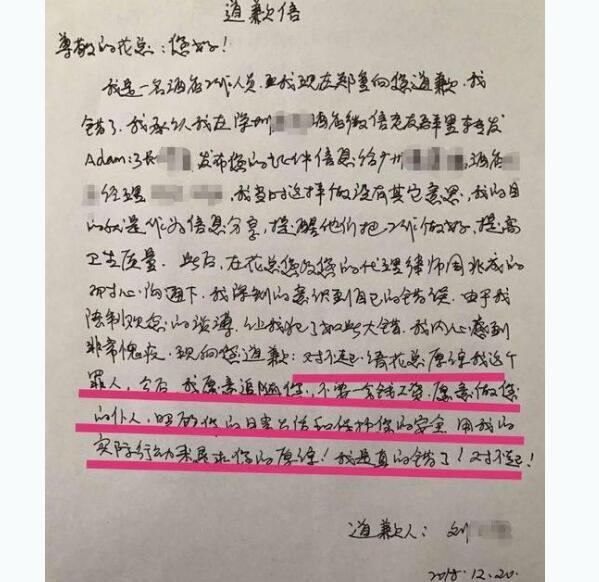 道歉信
尊敬的花总：您好！
我是一名酒店工作人员，我现在郑重向您道歉，我
错了，我承认我在深圳 酒店微信老友群里转发
Adam:张 发布您的证件信息给 ，酒店
经理 ，我当时这样做没有其它意思，我的目
的就是作为信息分享，提醒他们把工作做好，提高
卫生质量。此后，在花总您及您的代理律师周兆成的
耐心沟通下，我深刻的意识到自己的错误，由于我
法制观念的淡薄，让我犯了如此大错，我内心感到
非常愧疚，现向您道歉：对不起！请花总原谅我这个
罪人，今后，我愿意追随你，不要一分钱工资，愿意做您
的仆人，照顾你的日常生活和保护你的安全，用我的
实际行动来寻求你的原谅！我是真的错了！对不起！
道歉人：刘
2018.12.20.